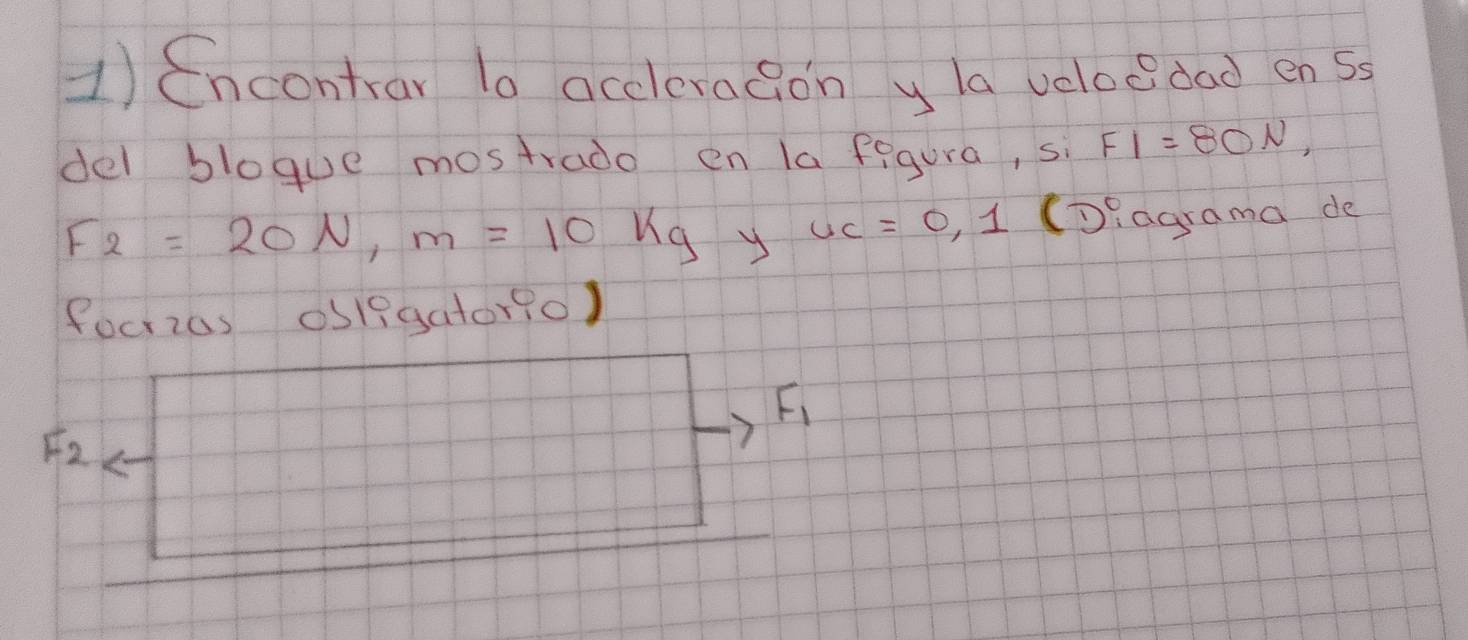 1) Encontrar la aceleración y la velocidad en 5s
del bloque mostrado en la figura, si F1 = 80N,
F2 = 20N, m = 10 Kg y uc = 0,1 (Diagrama de
fuerzas obligatorio)
F1
F2